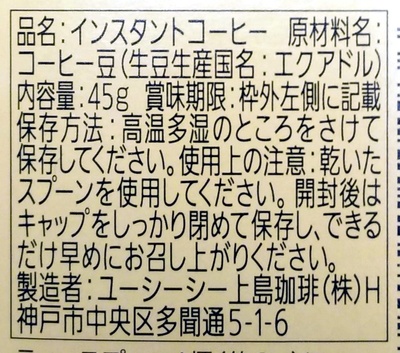 品名:インスタントコーヒー 原材料名:
コーヒー豆(生豆生産国名:エクアドル)
内容量:45g 賞味期限:枠外左側に記載
保存方法:高温多湿のところをさけて
保存してください。使用上の注意:乾いた
スプーンを使用してください。開封後は
キャップをしっかり閉めて保存し、できる
だけ早めにお召し上がりください。
製造者:ユーシーシー上島珈琲(株)H
神戸市中央区多聞通5-1-6